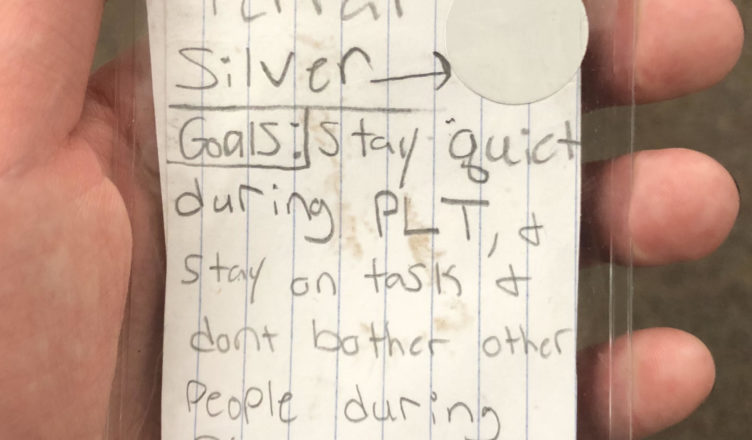 Silver →
Goals: Stay quiet
during PLT, &
stay on task &
dont bother other
people during